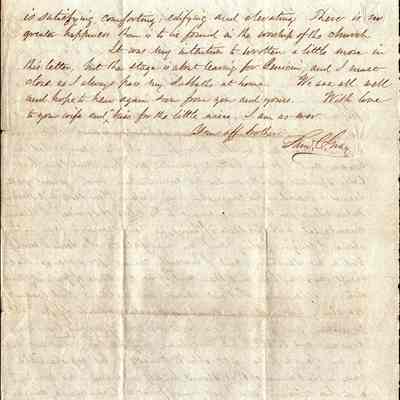 is satisfying, comforting, edifying and elevating. There is no
greater happiness than is to be found in the worship of the church.
It was my intention to written a little more in
this letter, but the stage is about leaving for Benicia, and I must
close as I always pass my Sabbaths at home. We are all well
and hope to hear again soon from you and yours. With love
to your wife and kiss for the little niece. I am as ever
Your aff. brother
Saml. C. Gray